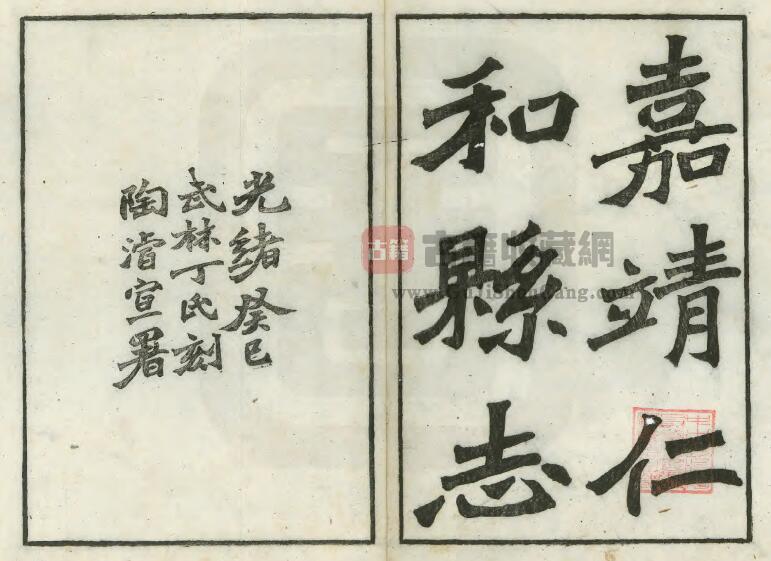 嘉靖仁
和縣志
光緒癸巳
武林丁氏刻
陶濬宣署
古籍
古籍收藏網